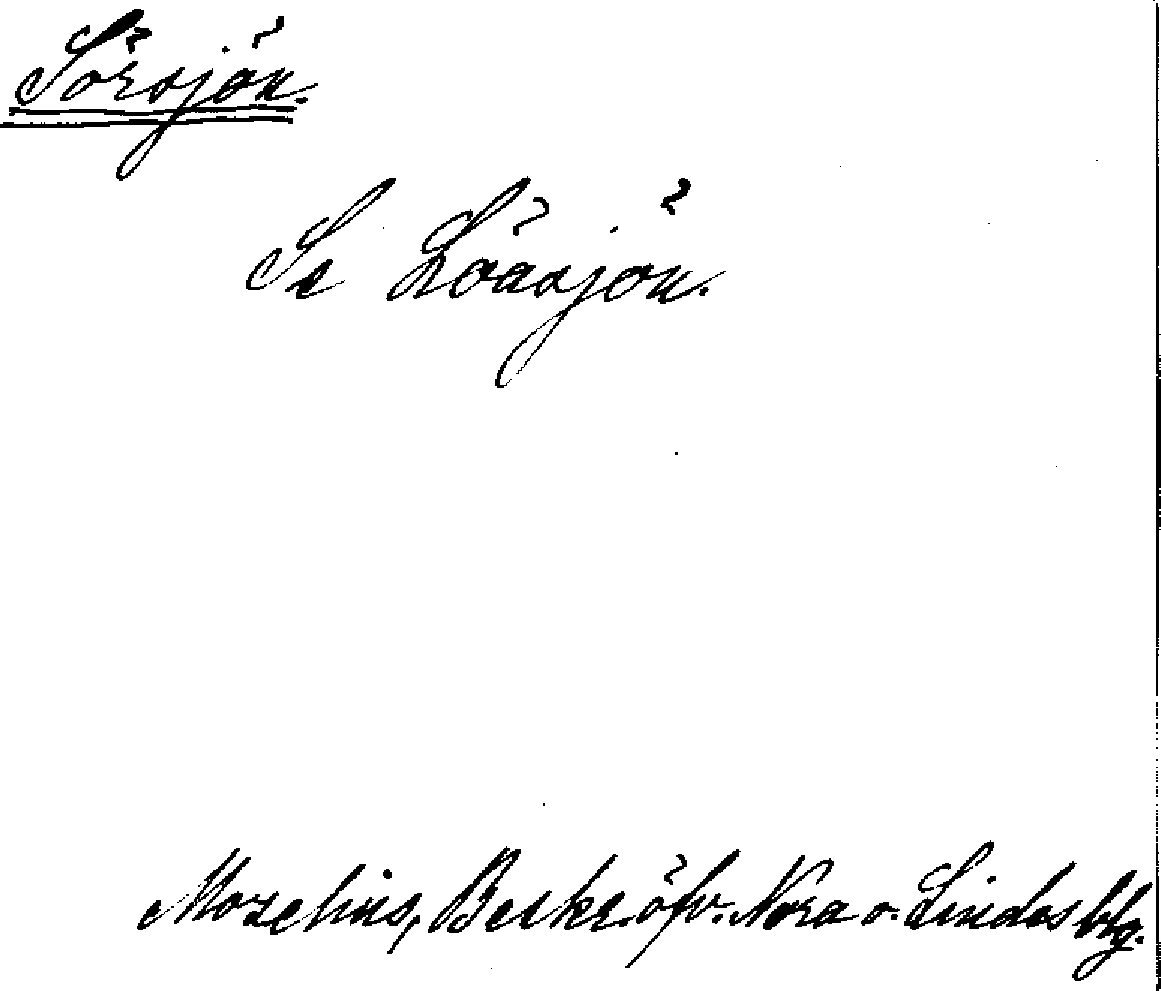 Sörsjön.
Se Löåsjön.
Morelius, Beskr. öfv. Nora o. Lindes blg.